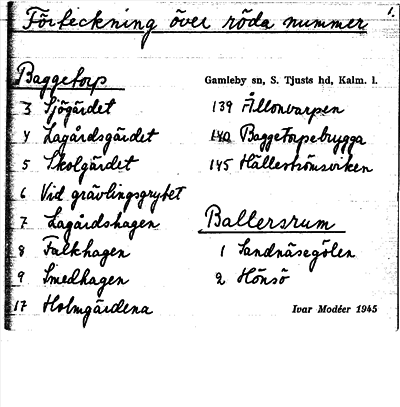 Förteckning över röda nummer
1.
Baggetorp
Gamleby sn, S. Tjusts hd, Kalm. l.
3 Sjögärdet
4 Lagårdsgärdet
5 Skolgärdet
6 Vid grävlingsgrytet
7 Lagårdshagen
8 Falkhagen
9 Smedhagen
17 Holmgärdena
139 Ållonvarpen
140 Baggetorpebrygga
145 Hällerströmsviken
Ballersrum
1 Sandnäsegölen
2 Hönsö
Ivar Modéer 1945